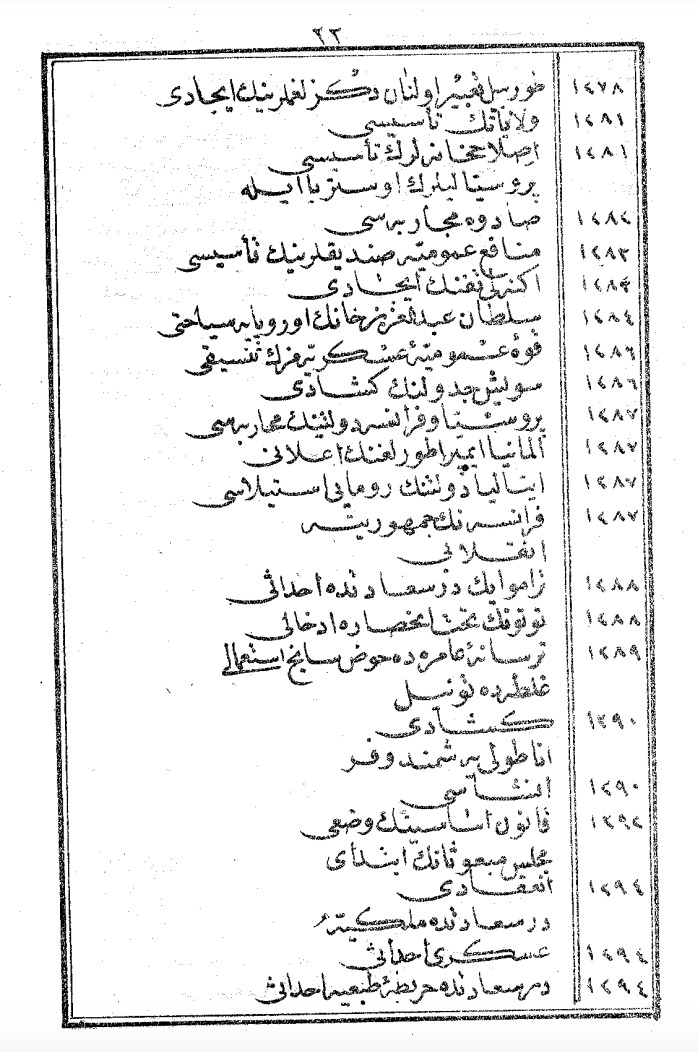 ٦٣
١٢٧٨ طورپیل تعبیر اولنان دكز لغملرینك ایجادی
١٢٨١ ولایاتك تأسیسی
١٢٨١ اصلاحخانه لرك تأسیسی
پروسیالیلرك اوستریا ایله
١٢٨٢ صادوه محاربه سی
١٢٨٣ منافع عمومیه صندیقلرینك تأسیسی
اكنه لی تفنك ایجادی
١٢٨٤ سلطان عبدالعزیز خانك اوروپایه سیاحتی
١٢٨٦ قوهٔ عمومیهٔ عسكریه مزك تنسیقی
١٢٨٦ سویش جدولنك كشادی
١٢٨٧ پروسیا و فرانسه دولتینك محاربه سی
١٢٨٧ المانیا ایمپراطورلغنك اعلانی
١٢٨٧ ایتالیا دولتنك رومایی استیلاسی
١٢٨٧ فرانسه نك جمهوریته
انقلابی
١٢٨٨ تراموایك درسعادتده احداثی
١٢٨٨ توتونك تحت انحصاره ادخالی
١٢٨٩ ترسانهٔ عامره ده حوض سابح استعمالی
غلطه ده تونیل
١٢٩٠ كشادی
اناطولی یه شمندوفر
١٢٩٠ انشاسی
١٢٩٢ قانون اساسینك وضعی
مجلس مبعوثانك ابتدای
١٢٩٤ انعقادی
درسعادتده ملكیهٔ
١٢٩٤ عسكری احداثی
١٢٩٤ درسعادتده خریطهٔ طبعیه احداثی